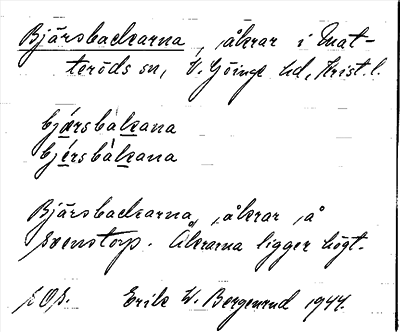 Bjärsbackarna, åkrar i Mat-
teröds sn, V. Göinge hd, Krist. l.
bjǽrsbàkana
bjérsbàkana
Bjärsbackarna, åkrar å
Svenstorp. Åkrarna ligger högt.
Erik W. Bergenrud 1944.